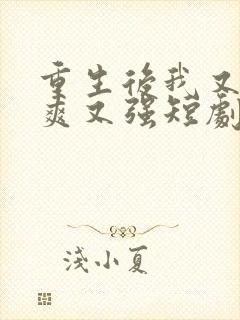 重生後我又
爽又強短劇
淺小夏